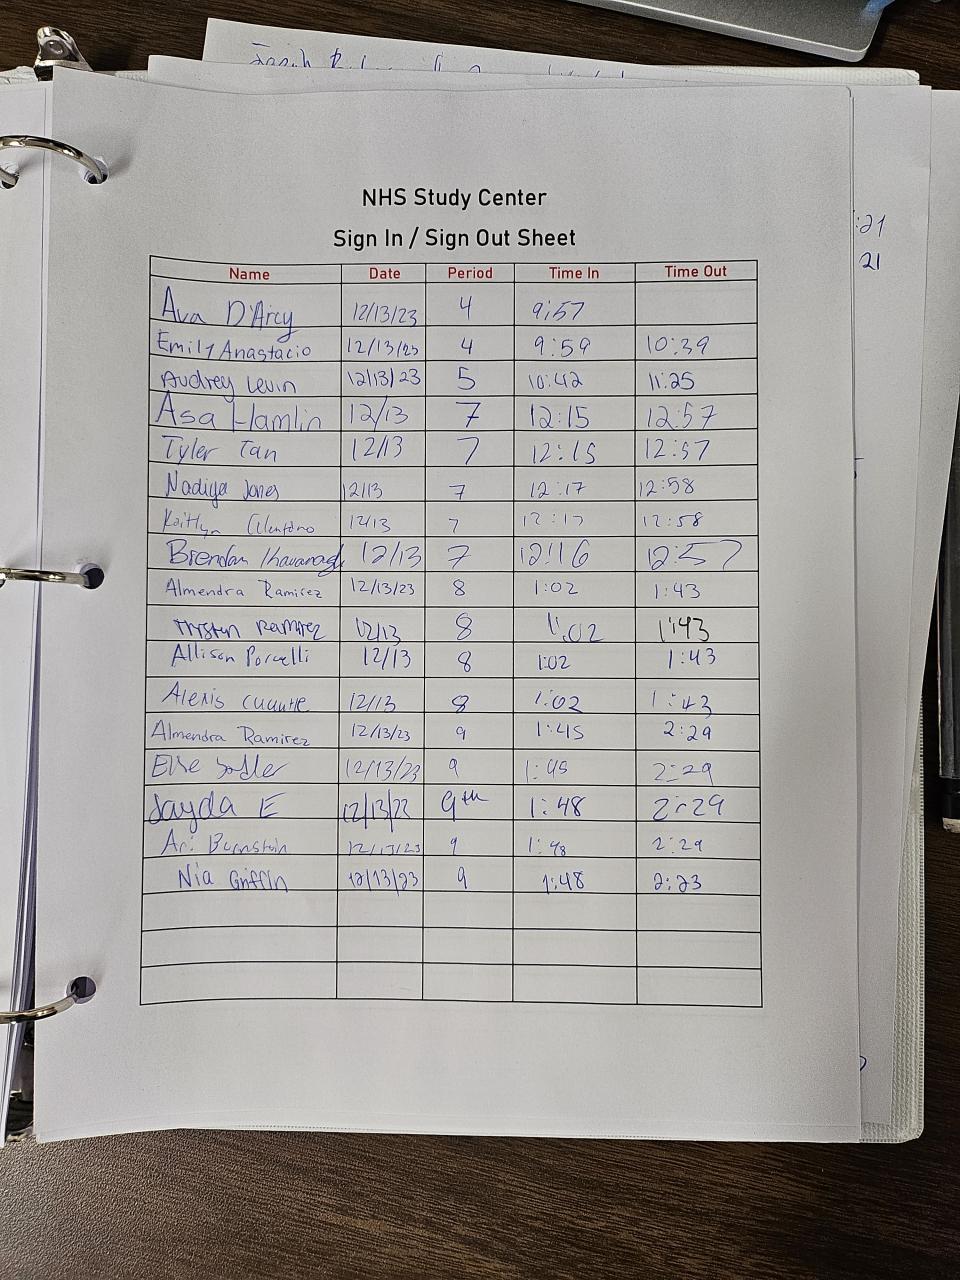 NHS Study Center
Sign In / Sign Out Sheet
Name Date Period Time In Time Out
Ava D'Arcy 12/13/23 4 9:57
Emily Anastacio 12/13/23 4 9:59 10:39
Audrey Levin 12/13/23 5 10:42 11:25
Asa Hamlin 12/13 7 12:15 12:57
Tyler Tan 12/13 7 12:15 12:57
Nadiya Jones 12/13 7 12:17 12:58
Kaitlyn 12/13 7 12:17 12:58
Brendan 12/13 7 12:16 12:57
Almendra Ramirez 12/13/23 8 1:02 1:43
Ramirez 12/13 8 1:02 1:43
Allison Porcelli 12/13 8 1:02 1:43
Alexis Cuautle 12/13 8 1:02 1:43
Almendra Ramirez 12/13/23 9 1:45 2:29
12/13/23 9 1:45 2:29
Jayda E 12/13/23 9th 1:48 2:29
Ari Burnstein 12/13/23 9 1:48 2:29
Nia Griffin 12/13/23 9 1:48 2:23
:21
21